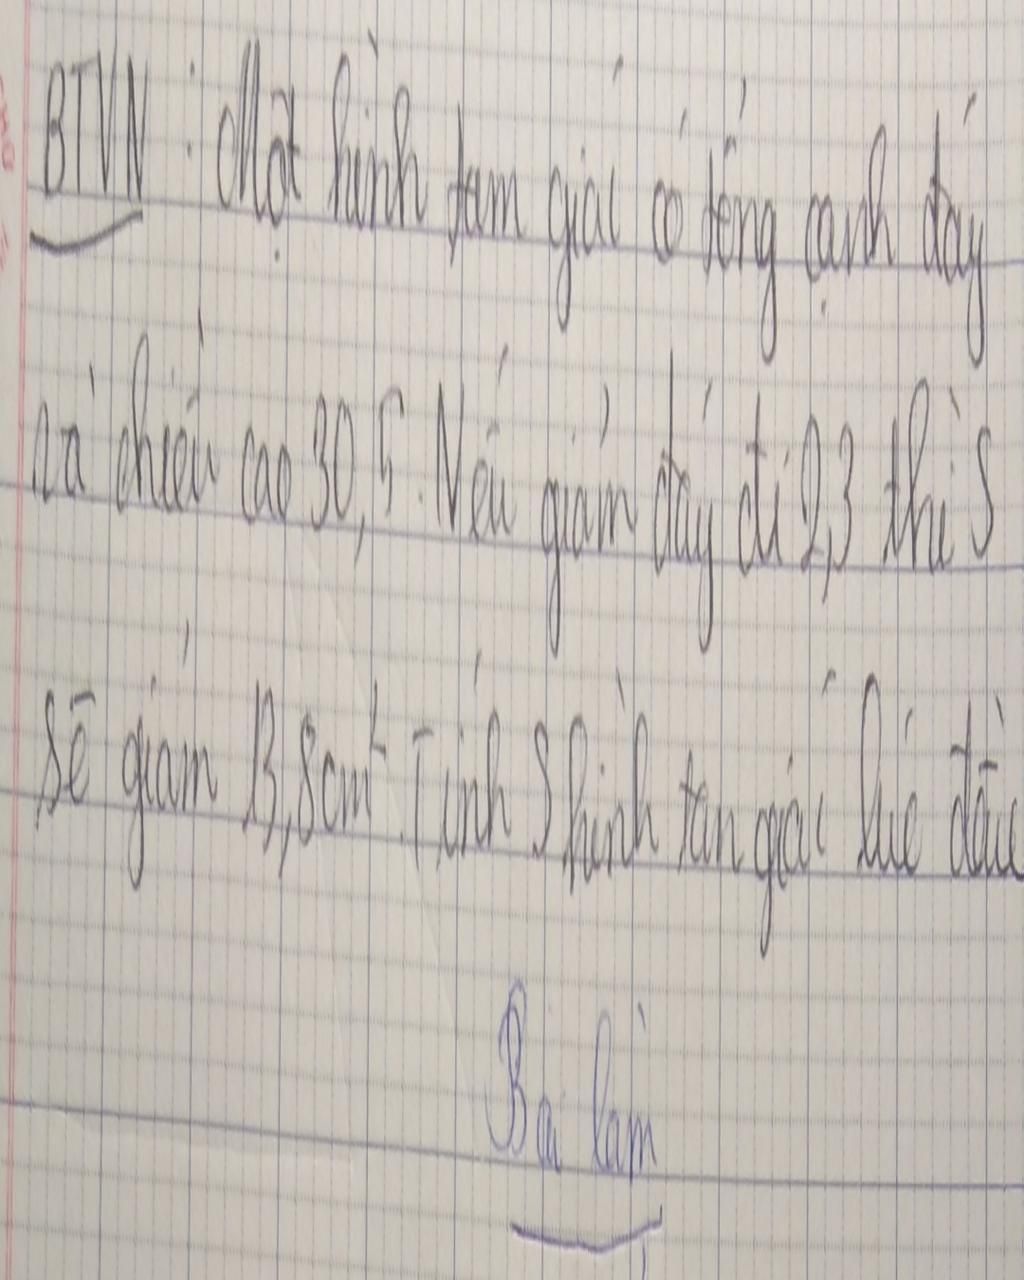 BTVN : Một hình tam giác có tổng cạnh đáy
và chiều cao 30,5. Nếu giảm đáy đi 2,3 thì S
sẽ giảm 13,8cm². Tính S hình tan giác lúc đầu
Bài làm